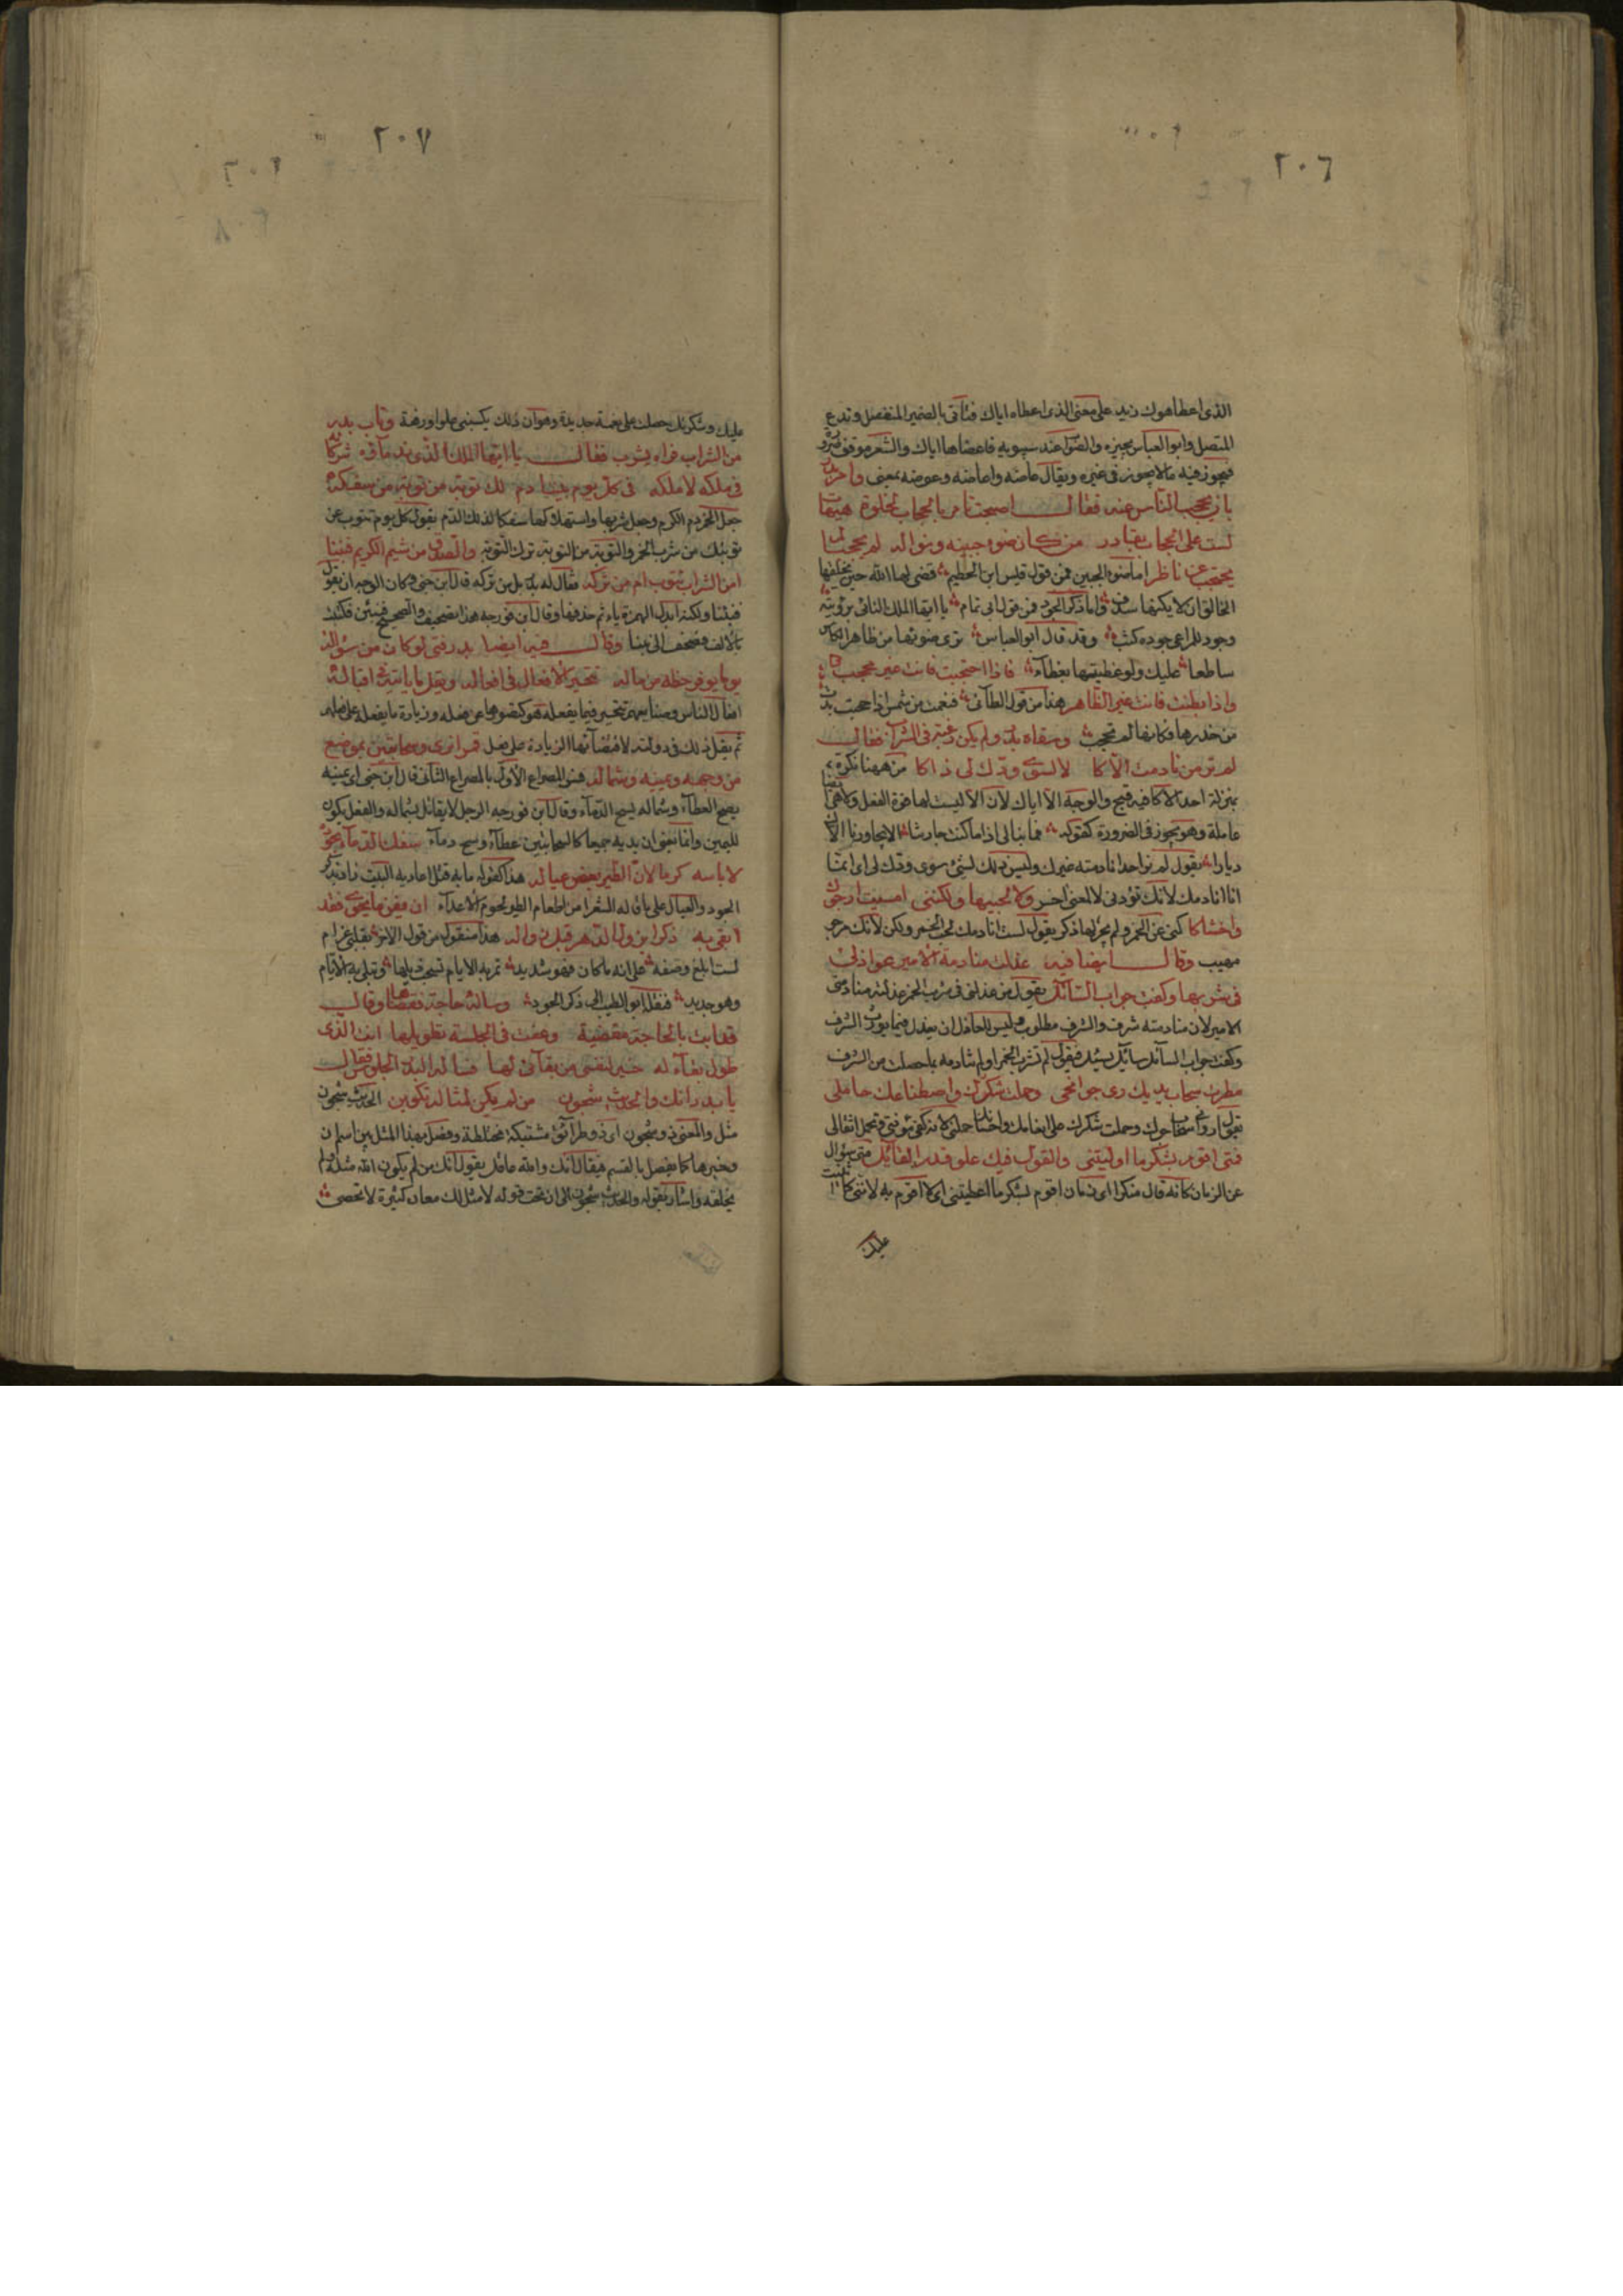 ٢٠٦
الذى اعطاهوك زيد على معنى الذى اعطاه اياك فتأتى بالضمير المنفصل وتدع
المتصل وابو العباس يجيزه والصواب عند سيبويه فاعضاها اياك والشعر موقف ضرورة
فيجوز فيه ما لا يجوز فى غيره ويقال عاضه واعاضه وعوضه بمعنى وأخر بدر
بان يحجب الناس عنه فقال اصبحت تأمر بالحجاب لخلوة هيهات
لست على الحجاب بقادر من كان ضوء جبينه ونواله لم يحجبا لم
يحتجب عن ناظر اما ضوء الجبين فمن قول قيس ابن الخطيم قضى لها الله حين يخلقها
الخالق ان لا يكنها سدف واما ذكر الجود فمن قول ابى تمام يا ايها الملك النائى برؤيته
وجوده لمراعى جوده كثب وقد قال ابو العباس ترى ضوئها من ظاهر الكاس
ساطعا عليك ولو غطيتها بغطاء فاذا احتجبت فانت غير محجب
واذا بطنت فانت عين الظاهر هذا من قول الطائى فنعمت من شمس اذا حجبت بدت
من خدرها فكانها لم تحجب وسقاه بدر ولم يكن رغبة فى الشراب فقال
لم تر من نادمت الاكا لا لسوى ودك لى ذاكا من ههنا نكرة
بمنزلة احد الاكا فيه قبيح والوجه الا اياك لان الا ليست لها قوة الفعل ولا هى ايضا
عاملة وهو يجوز فى الضرورة كقوله فما نبالى اذا ما كنت جارتنا الا يجاورنا الاك
ديار يقول لم تر احدا نادمته غيرك وليس ذلك لشئ سوى ودك لى اى انما
انا انادمك لانك تودنى لا لمعنى اخر ولا لحبيها ولكننى امسيت ارجوك
واخشاكا كنى عن الخمر ولم يجر لها ذكر يقول لست انادمك لحب الخمر ولكن لانك مرجو
مهيب وقال ايضا فيه عذلت منادمة الامير عواذلى
فى شربها وكفت جواب السائل يقول من عذلنى فى شرب الخمر عذلته منادمتى
الامير لان منادمته شرف والشرف مطلوب وليس للعاقل ان يعذل فيما يورث الشرف
وكفت جواب السائل سائل يسئل فيقول لم تشرب الخمر او لم تنادمه بما حصلت من الشرف
مطرت سحاب يديك رى جوانحى وحملت شكرك واصطناعك حاملى
يقول اروانى سحاب جودك وحملت شكرك على انعامك واحسانك حملنى لانه كفى مؤنتى وتحمل اثقالى
فمتى اقوم بشكر ما اوليتنى والقول فيك علو قدر القائل متى سؤال
عن الزمان كانه قال منكرا اى زمان اقوم لشكر ما اعطيتنى اى لا اقوم به لاننى كلما اثنيت
عليك
٢٠٧
عليك وشكرتك حصلت على نعمة جديدة وهو ان ذلك يكسبنى علوا ورفعة وتاب بدر
من الشراب فراه يشرب فقال يا ايها الملك الذى ندماؤه شركاؤه
فى ملكه لا ملكه فى كل يوم بيننا دم لك توبة من توبة من سفكه
جعل الخمر دم الكرم وجعل شربها واستهلاكها سفكا لذلك الدم يقول كل يوم تتوب عن
توبتك من شرب الخمر والتوبة من التوبة ترك التوبة والصدق من شيم الكريم فنبنا
امن الشراب تتوب ام من تركه فقال له بدر بل من تركه قال ابن جنى وكان الوجه ان يقول
فنبئنا ولكنه ابدل الهمزة ياء ثم حذفها وقال ابن فورجه هذا تصحيف والصحيح فنبئن فكتبت
بالالف فصحف الى نبنا وقال فيه ايضا بدر فتى لو كان من سؤاله
يوما توفر حظه من ماله تتحير الافعال فى افعاله ويقل ما ياتيه فى اقباله
افعال الناس وصنائعهم تتحير فيما يفعله هو لقصورها عن فعله وزيادة ما يفعله على فعلهم
ثم يقل ذلك فى دولته لاقتضائها الزيادة على فعل قمرا نرى وسحابتين بموضع
من وجهه ويمينه وشماله فسر المصراع الاول بالمصراع الثانى قال ابن جنى اى يمينه
يصح العطاء وشماله يسح الدماء وقال ابن فورجه الرجل لا يقاتل بشماله والفعل يكون
لليمين وانما يعنى ان يديه جميعا كالسحابتين عطاء وسح دماء سفك الدماء بجوده
لا باسه كرما لان الطير بعض عياله هذا كقوله ما به قتل اعاديه البيت زاد بذكر
الجود والعيال على ما قاله الشعرا من اطعام الطير لحوم الاعداء ان يفن ما يحوى فقد
ابقى به ذكرا يزول الدهر قبل زواله هذا منقول من قول الاخر بقلبى غرام
لست ابلغ وصفه على انه ما كان فهو شديد تمر به الايام تسحب ذيلها وتبلى به الايام
وهو جديد فنقله ابو الطيب الى ذكر الجود وسأله حاجة فقضاها وقال
قد ابت بالحاجة مقضية وعفت فى الجلسة تطويلها انت الذى
طول بقاء له خير لنفسى من بقائى لها فساله بدر الجلوس فقال
يا بدر انك والحديث شجون من لم يكن لمثاله تكوين الحديث شجون
مثل والمعنى ذو شجون اى ذو طرائق مشتبكة مختلطة وفصل بهذا المثل بين اسم ان
وخبرها كما يفصل بالقسم فيقال انك والله عاقل يقول انك من لم يكون الله مثله ولم
يخلقه واشار بقوله والحديث شجون الى ان تحت قوله لا مثل لك معان كثيرة لا تحصى